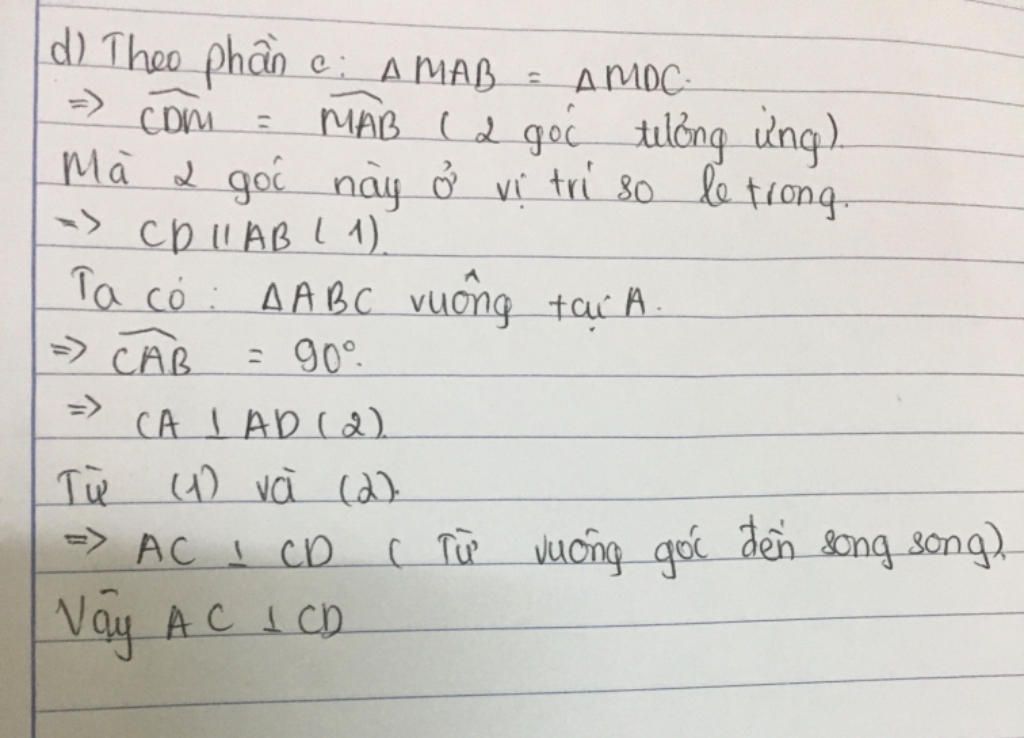 d) Theo phần c: ΔMAB = ΔMDC.
=> \widehat{CDM} = \widehat{MAB} (2 góc tương ứng).
Mà 2 góc này ở vị trí so le trong.
=> CD // AB (1).
Ta có: ΔABC vuông tại A.
=> \widehat{CAB} = 90°.
=> CA ⊥ AD (2).
Từ (1) và (2).
=> AC ⊥ CD (Từ vuông góc đến song song).
Vậy AC ⊥ CD